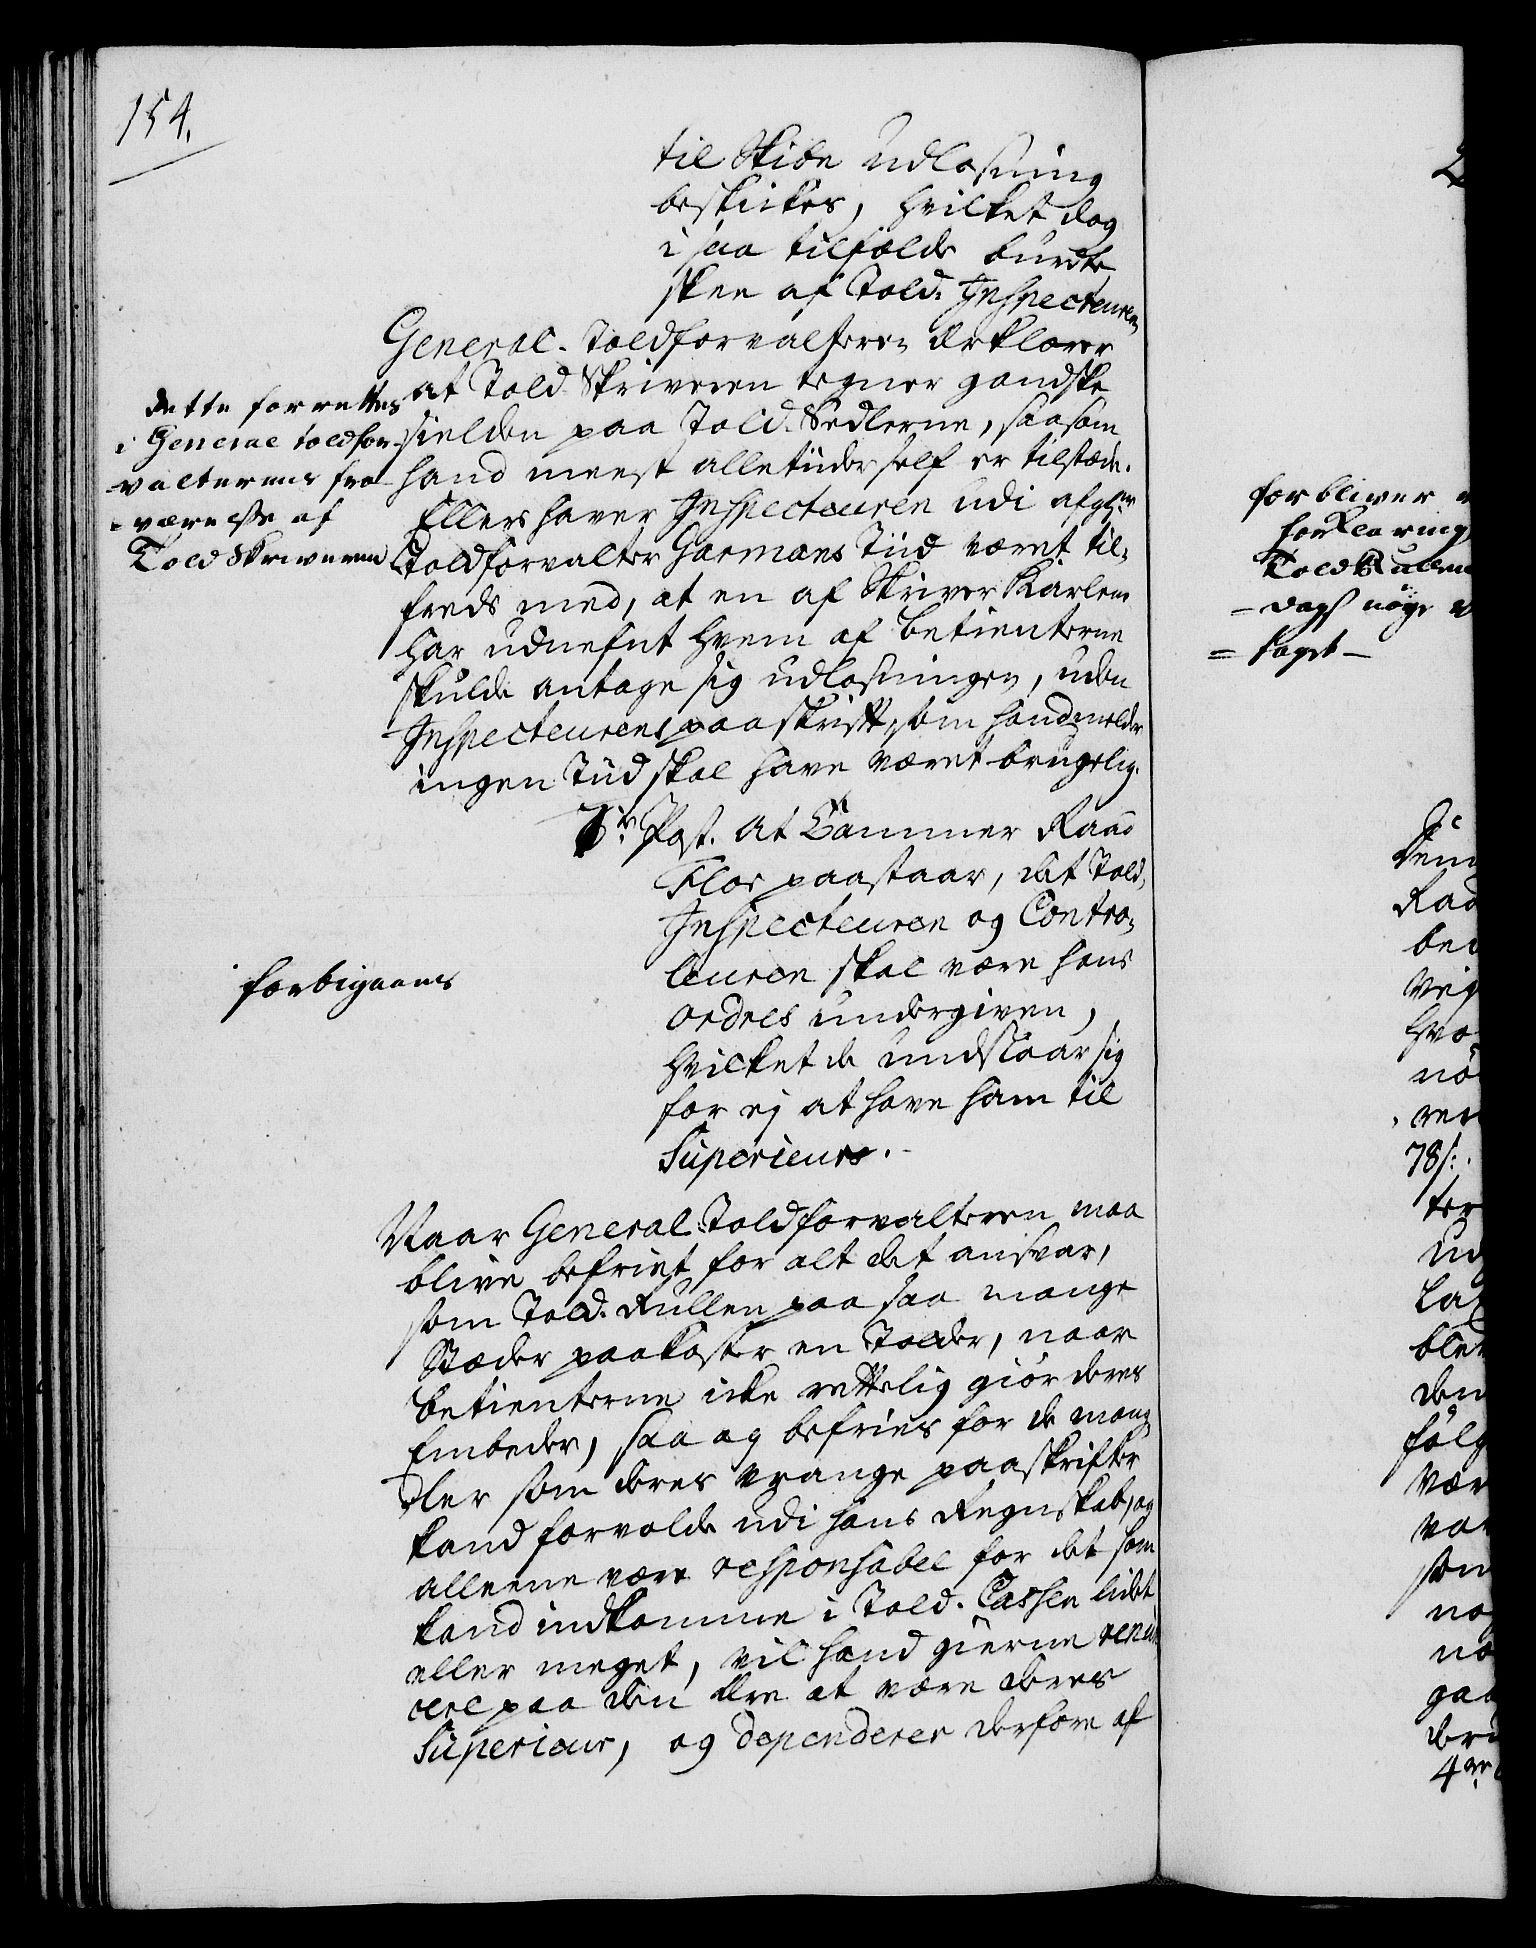 154.
til Skibe Udlosning
beskikes, hvilket dog
i saa tilfælde burde
skee af Told-Inspecteuren
General-Toldforvalteren Erklærer
at Told-Skriveren tegner gandske
sielden paa Told-Sedlerne, saasom
hand meest alletider self er tilstæde.
Ellers haver Inspecteuren udi afg:
Toldforvalter Garmans Tiid været til-
freds med, at en af Skriver Karlene
har udnefnt hvem af betienterne
skulde antage sig udlosningen, uden
Inspecteurens paaskrift, som hand melder
ingen Tiid skal have været brugelig.
dette forrettes
i General toldfor-
valterens fra-
værelsse af
Told Skriveren
Post. At Cammer Raad
Flor paastaar, det Told-
Inspecteuren og Contro-
leuren skal være hans
ordres undergiven,
hvilket de undslaar sig
for ej at have ham til
Superieur.
forbigaaes
Naar General-Toldforvalteren maa
blive befriet for alt det ansvar,
som Told-Rullen paa saa mange
Stæder paakaster en Tolder, naar
betienterne icke rettelig giör deres
Embeder, saa og befries for de mang-
ler som deres vrange paaskrifter
kand forvolde udi hans Regnskab, og
alleene være responsabel for det som
kand indkomme i Told-Cassen lidet
eller meget, vil hand gierne renun-
cere paa den Ære at være deres
Superieur, og dependerer derfore af
forbliver
forklaring
Told Rullen
dags nöye
taget
Rad
78/: